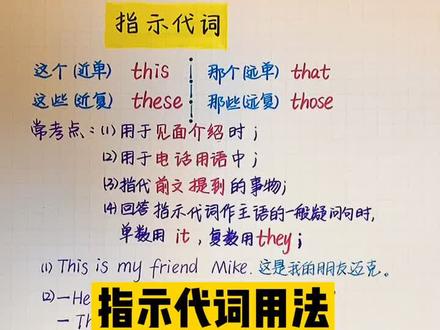 指示代词
这个(近单) this 那个(远单) that
这些(近复) these 那些(远复) those
常考点:(1)用于见面介绍时;
(2)用于电话用语中;
(3)指代前文提到的事物;
(4)回答指示代词作主语的一般疑问句时,
单数用 it,复数用they;
(1) This is my friend Mike. 这是我的朋友迈克.
(2)-He
指示代词用法